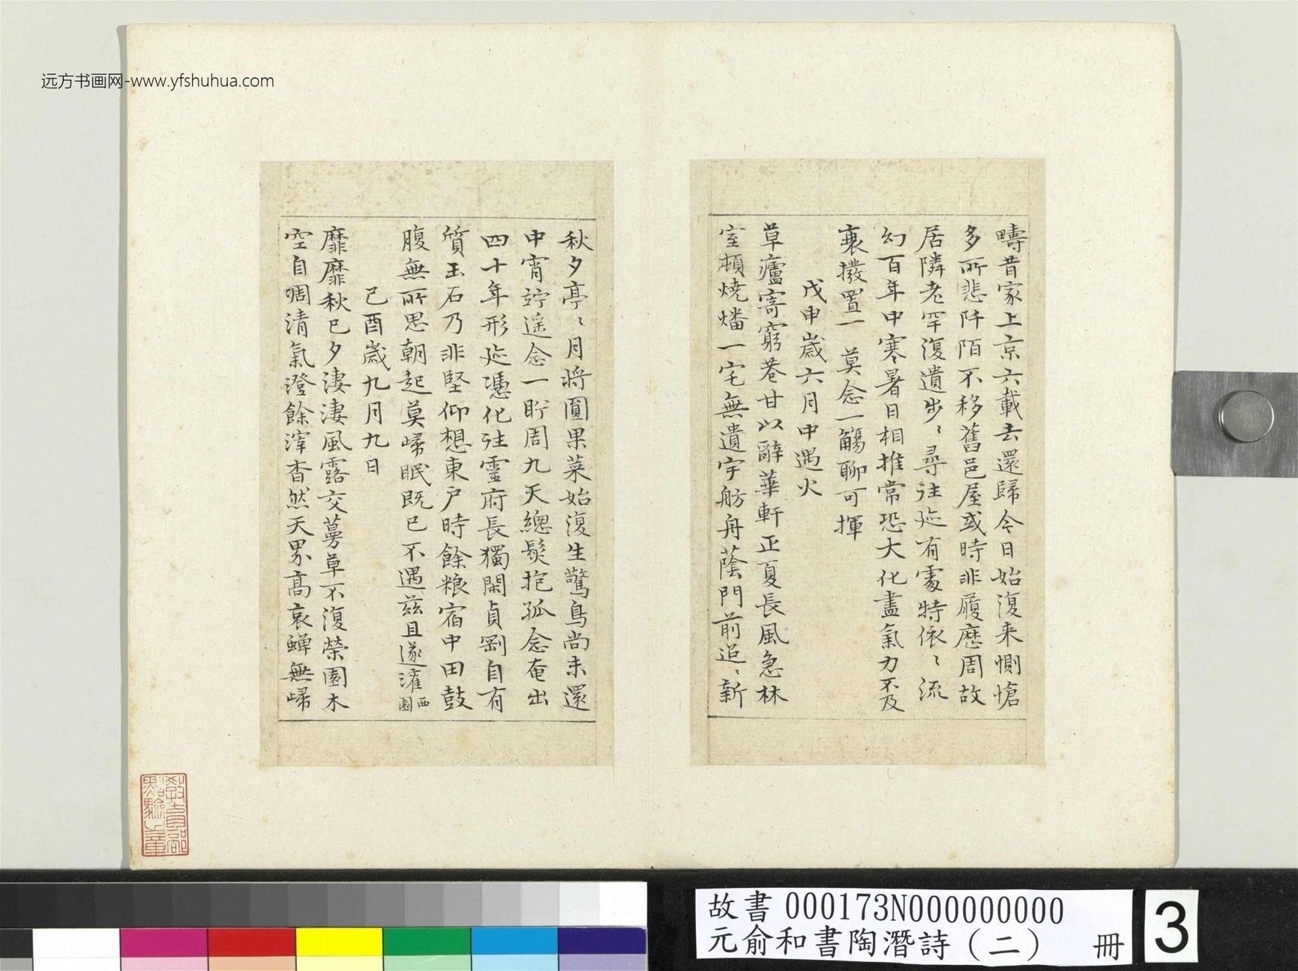 远方书画网-www.yfshuhua.com
疇昔家上京六載去還歸今日始復来惻愴
多所悲阡陌不移舊邑屋或時非履歴周故
居隣老罕復遺步〻尋往迹有處特依〻流
幻百年中寒暑日相推常恐大化盡氣力不及
衰撥置一莫念一觴聊可揮
戊申歲六月中遇火
草廬寄窮巷甘以辭華軒正夏長風急林
室頓燒燔一宅無遺宇舫舟蔭門前迢〻新
秋夕亭〻月將圓果菜始復生驚鳥尚未還
中宵竚遥念一盻周九天總髮抱孤念奄出
四十年形迹憑化往靈府長獨閑貞剛自有
質玉石乃非堅仰想東户時餘粮宿中田鼓
腹無所思朝起莫歸眠既已不遇茲且遂灌西園
己酉歲九月九日
靡靡秋已夕淒淒風露交蔓草不復榮園木
空自凋清氣澄餘滓杳然天界高哀蟬無歸
教育部點驗之章
故書 000173N000000000
元俞和書陶潛詩（二） 冊
3